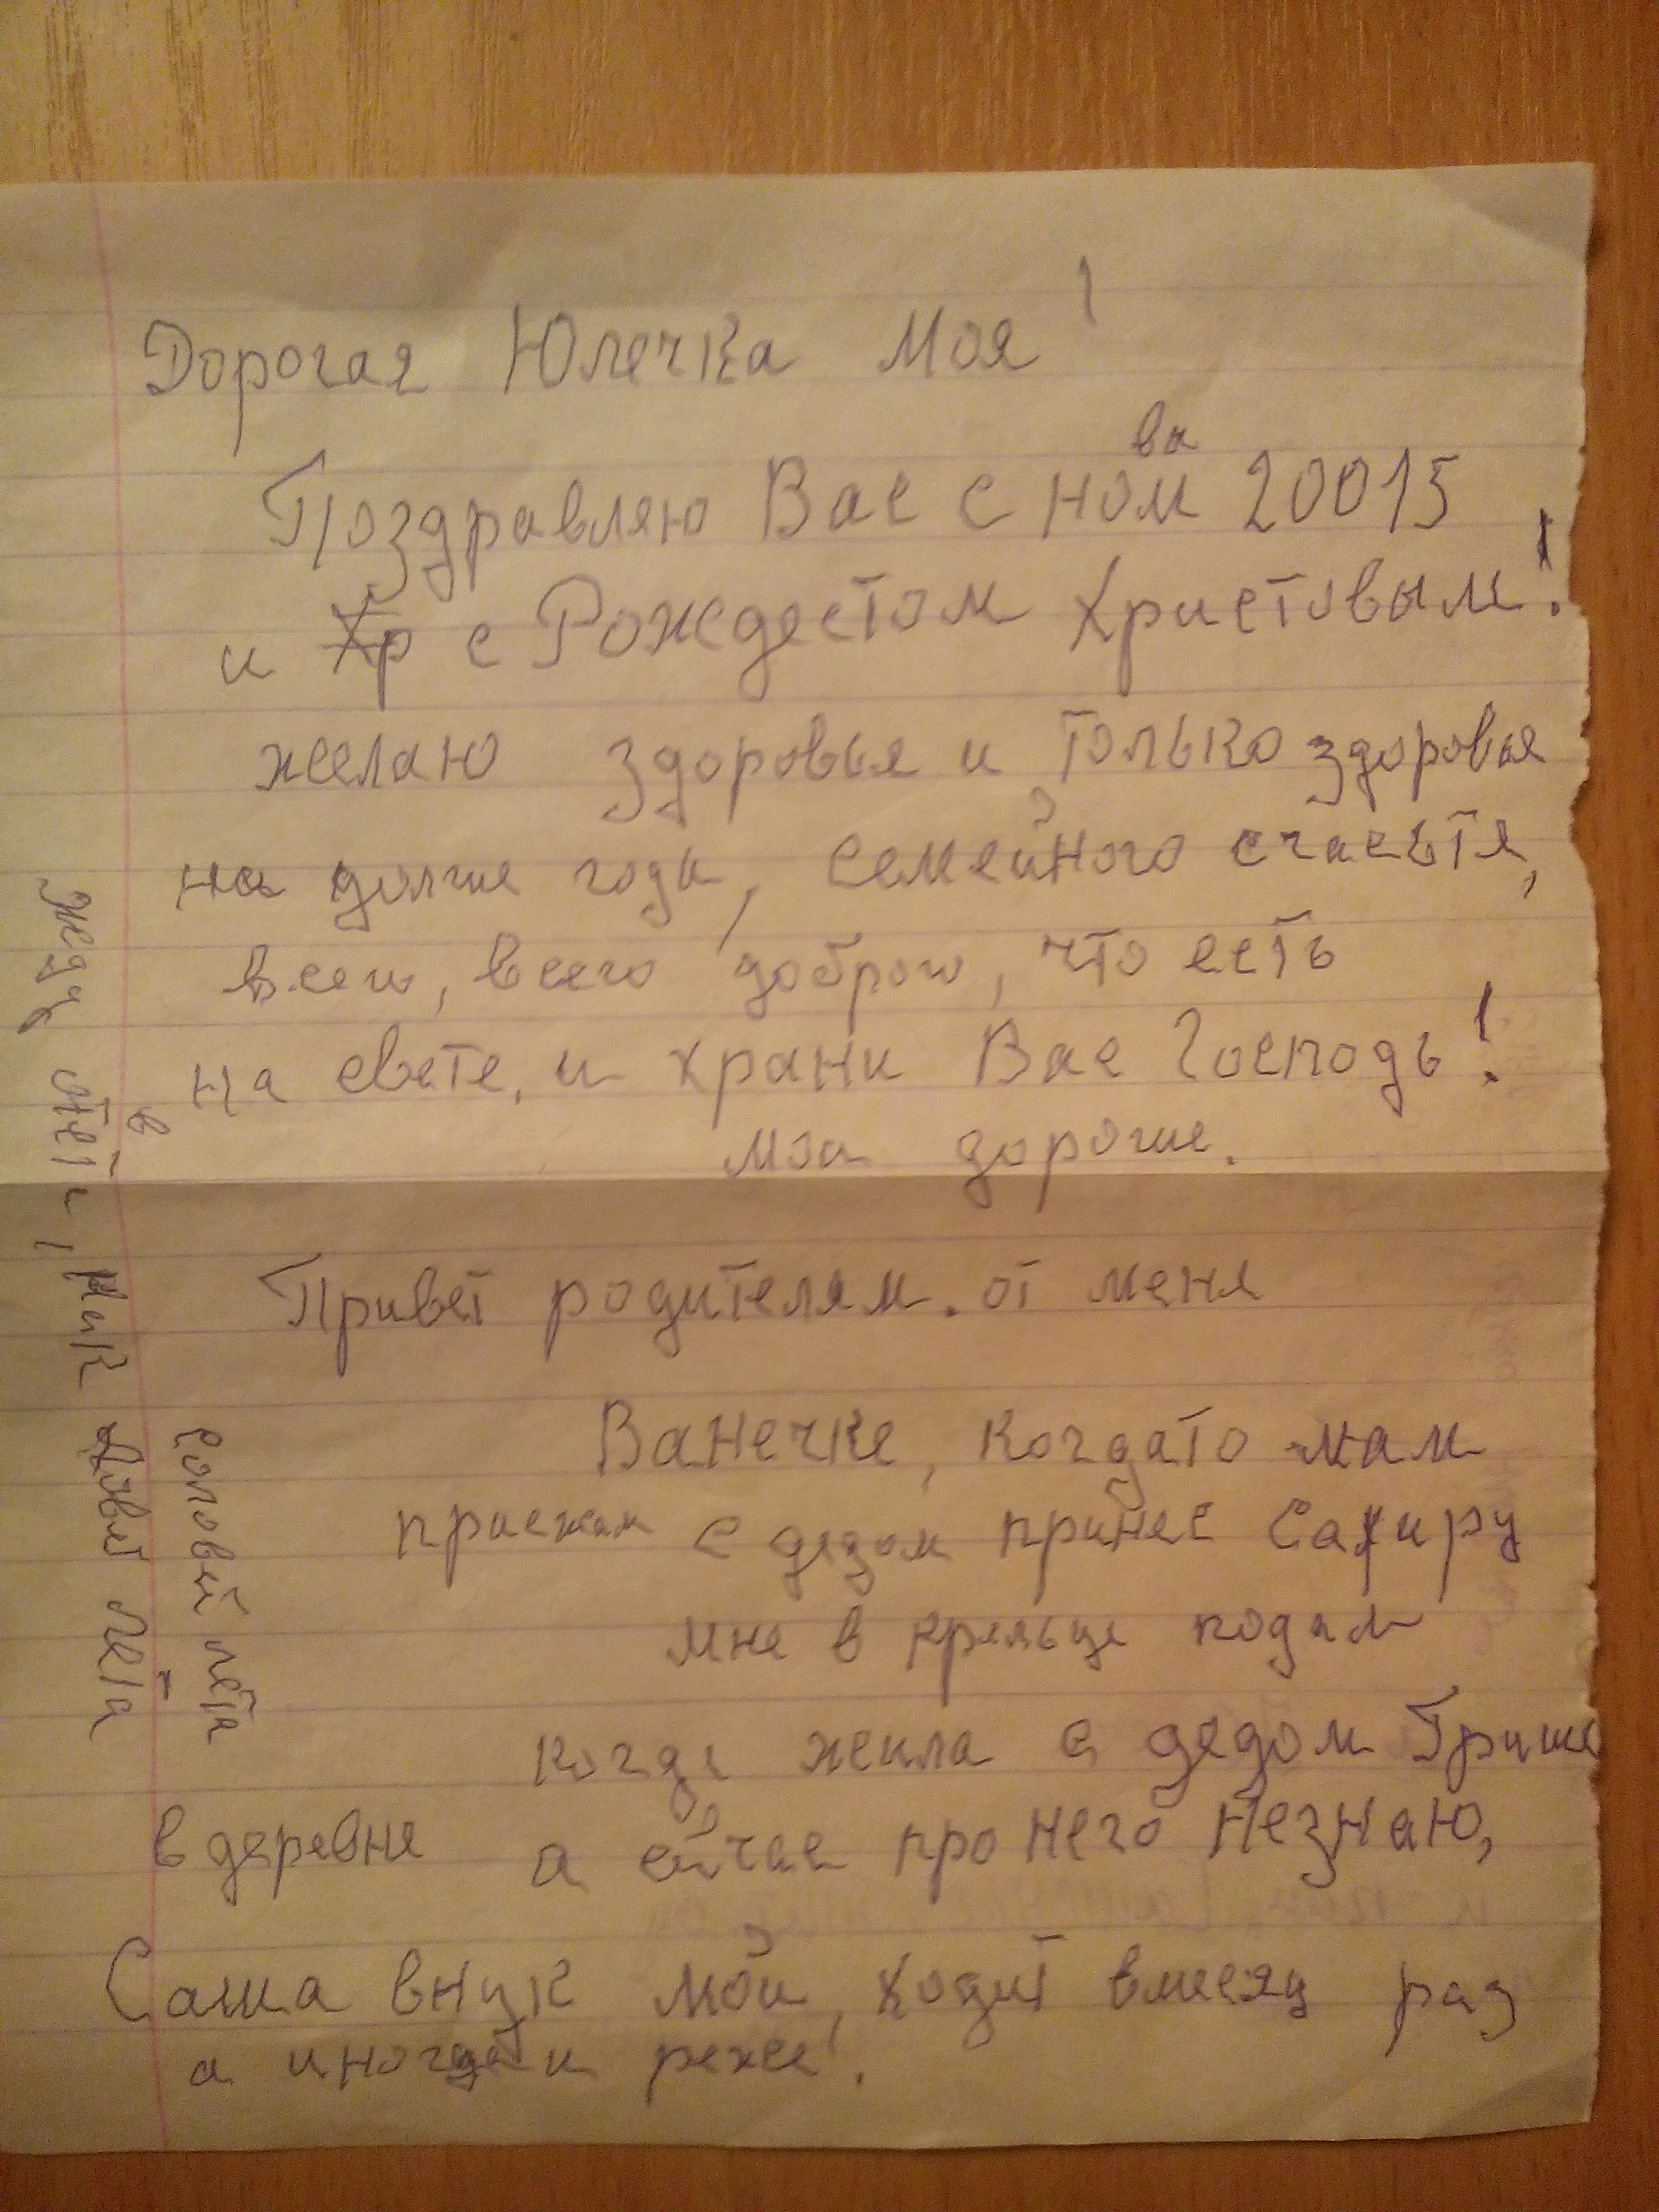 Дорогая Юлечка Моя!
Поздравляю Вас с новам 20015
и Хр с Рождестом Христовым!
желаю здоровья и только здоровья
на долгие года, семейного счасьтя,
всего, всего доброго, что есть
на свете, и храни Вас Господь!
мои дорогие.
Привет родителям. от меня
Ванечке, когдато мам
приежал с дедом принес Сафиру
мне в крыльце подал
когда жила с дедом Гришей
в деревне а сйчас про него незнаю,
Саша внук мой, ходит вмесяц раз
а иногда и реже.
жду в лета, как
соловей лета